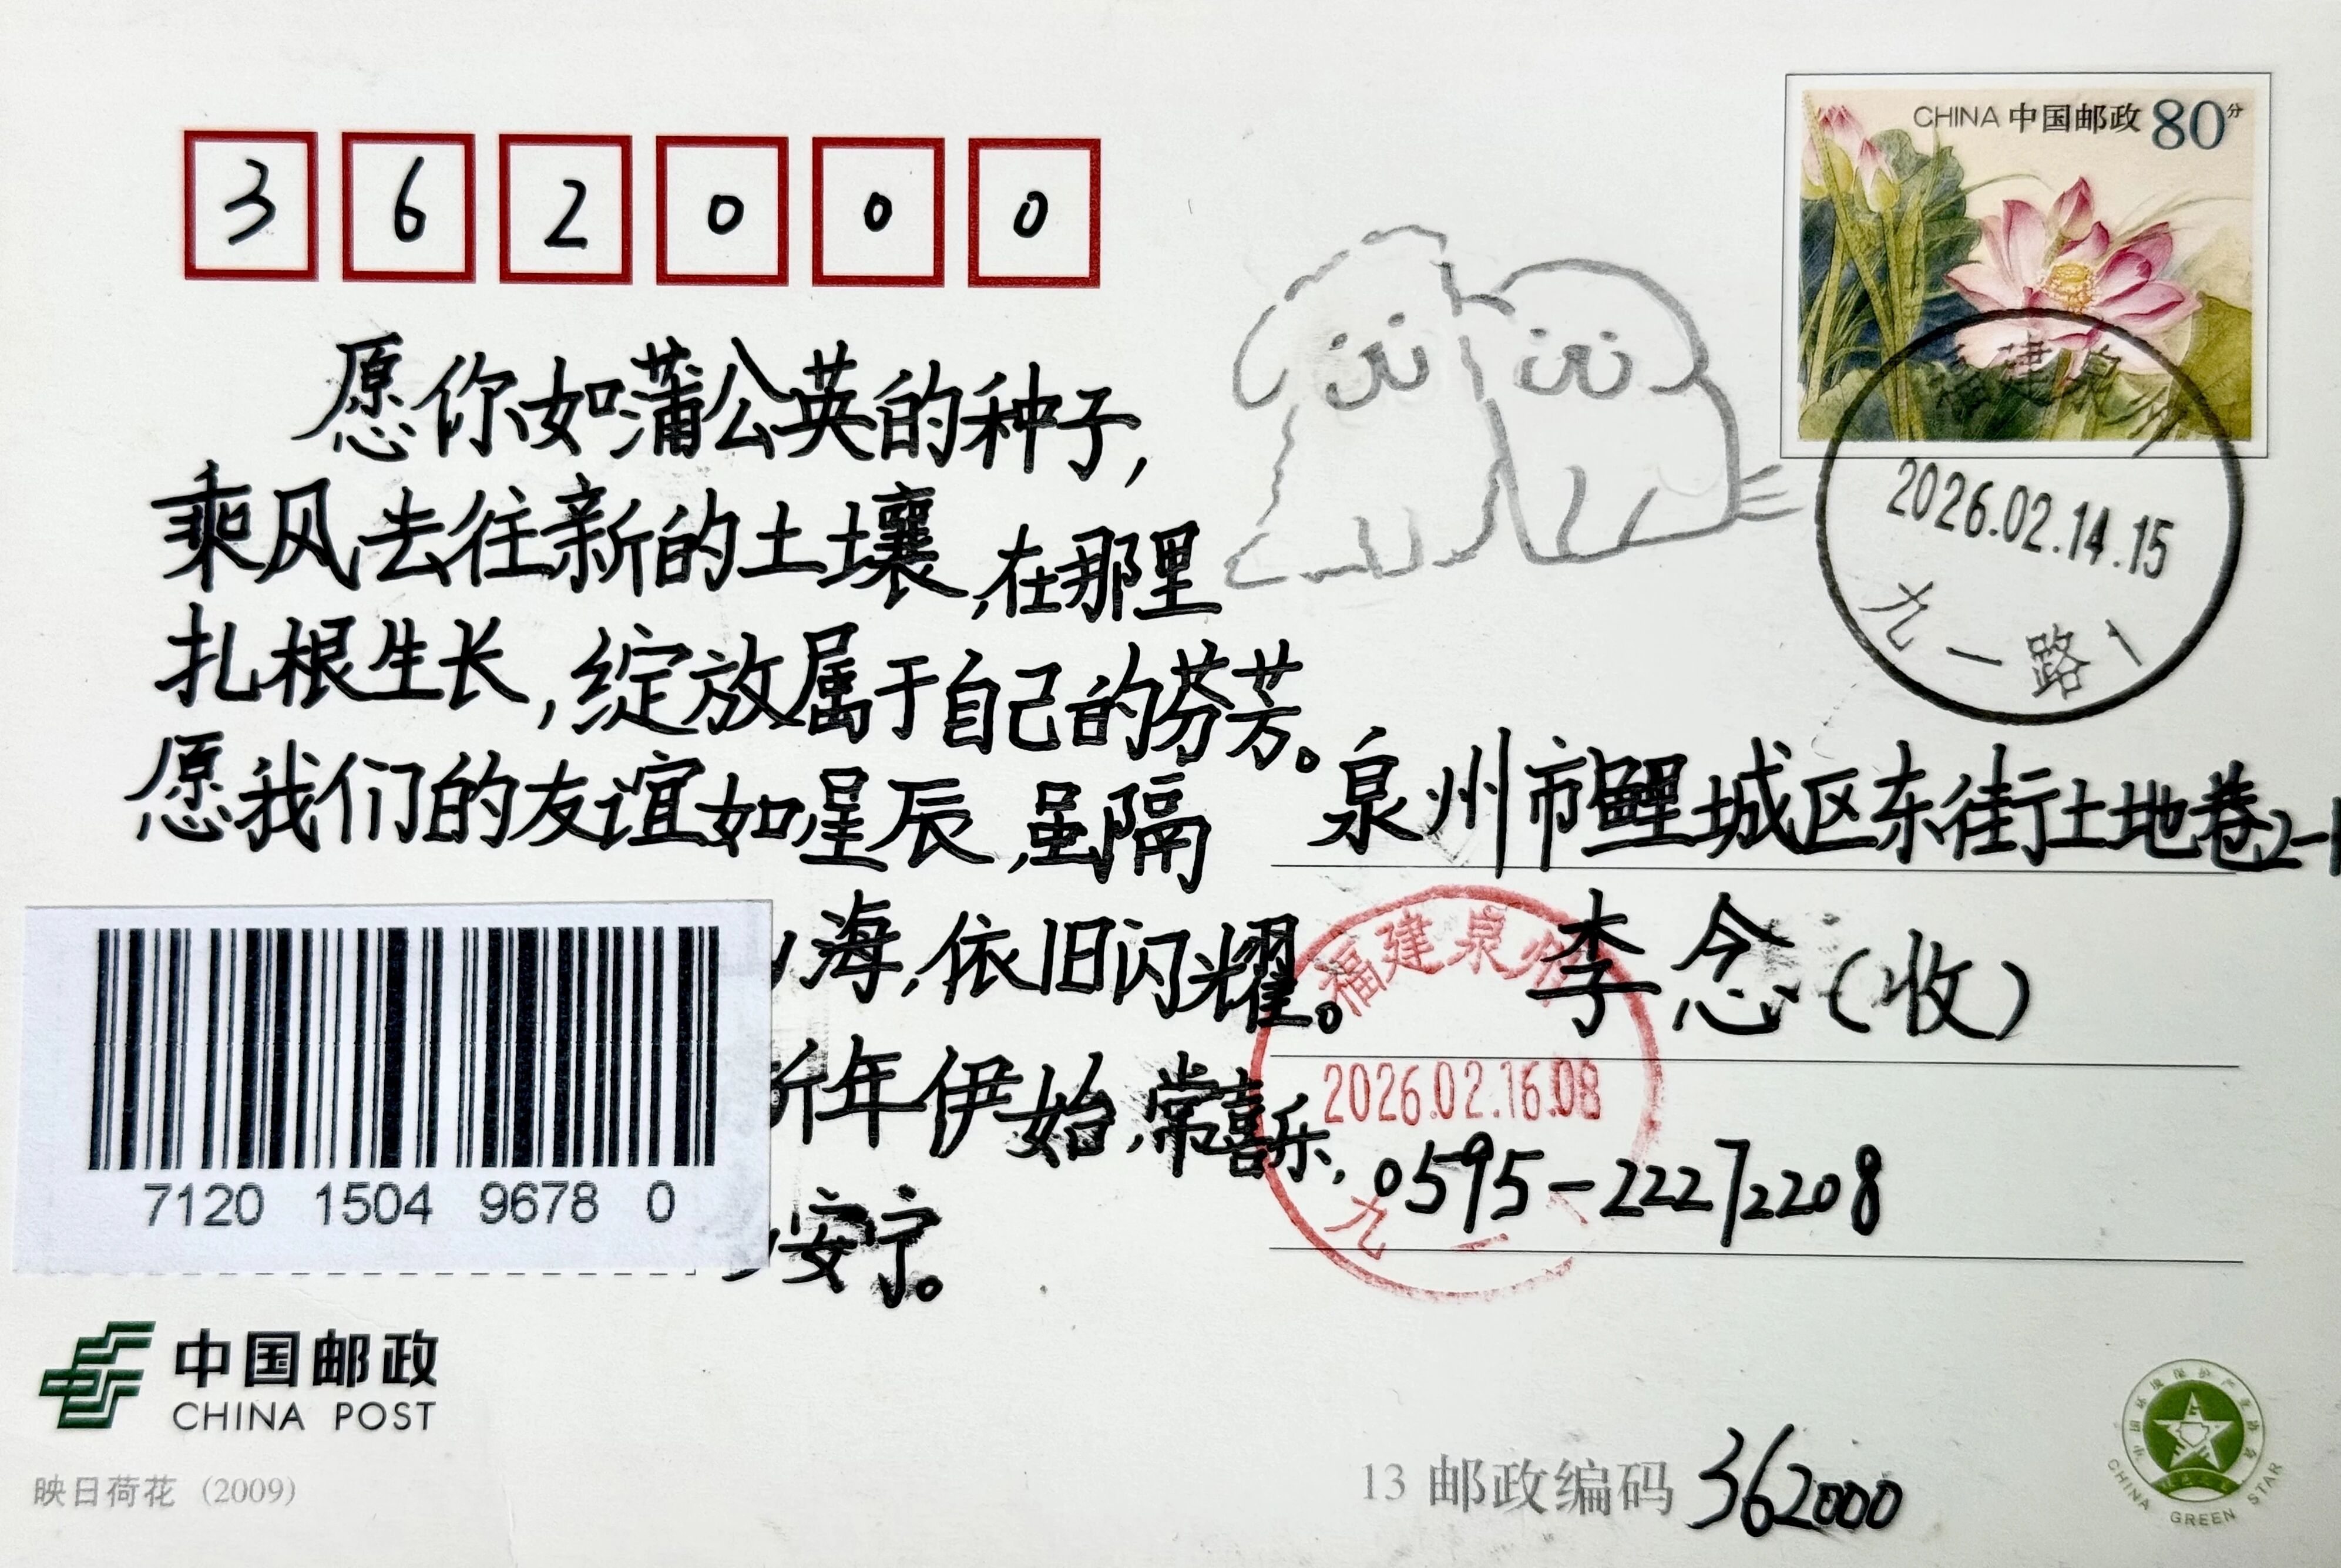 CHINA 中国邮政 80分
3 6 2 0 0 0
愿你如蒲公英的种子,
乘风去往新的土壤,在那里
扎根生长,绽放属于自己的芬芳。
愿我们的友谊如星辰,虽隔
海,依旧闪耀。
年伊始,常喜乐,
安宁。
福建泉
2026.02.14.15
九一路1
泉州市鲤城区东街土地巷2-1
李念(收)
0595-22272208
福建泉州
2026.02.16.08
九一
7120 1504 9678 0
中国邮政
CHINA POST
映日荷花 (2009)
13 邮政编码 362000
CHINA GREEN STAR